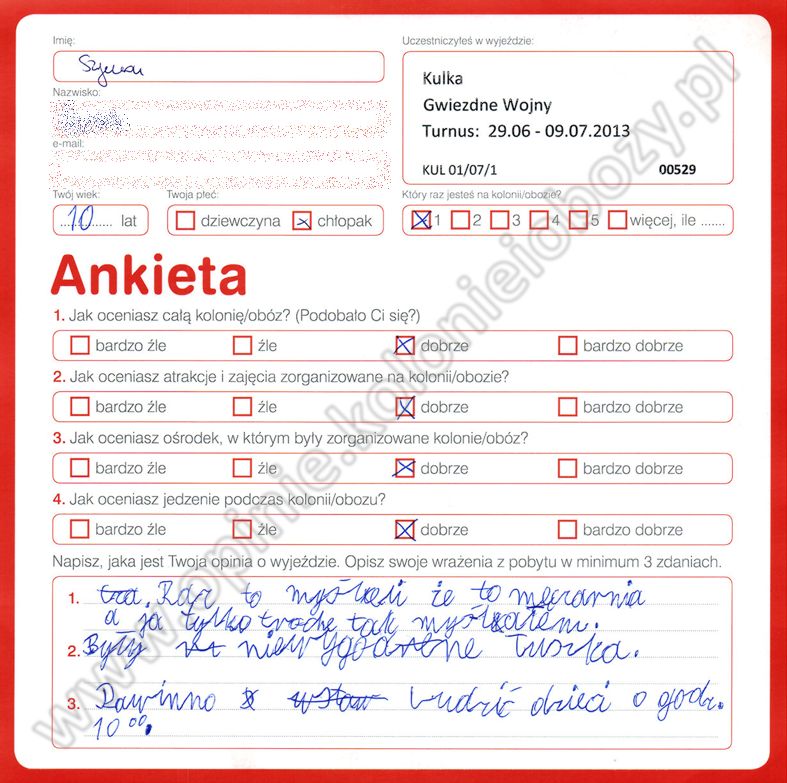 Imię:
Szymon
Nazwisko:
e-mail:
Uczestniczyłeś w wyjeździe:
Kulka
Gwiezdne Wojny
Turnus: 29.06 - 09.07.2013
KUL 01/07/1 00529
Twój wiek:
10 lat
Twoja płeć:
dziewczyna chłopak
Który raz jesteś na kolonii/obozie?
1 2 3 4 5 więcej, ile .......
Ankieta
1. Jak oceniasz całą kolonię/obóz? (Podobało Ci się?)
bardzo źle źle dobrze bardzo dobrze
2. Jak oceniasz atrakcje i zajęcia zorganizowane na kolonii/obozie?
bardzo źle źle dobrze bardzo dobrze
3. Jak oceniasz ośrodek, w którym były zorganizowane kolonie/obóz?
bardzo źle źle dobrze bardzo dobrze
4. Jak oceniasz jedzenie podczas kolonii/obozu?
bardzo źle źle dobrze bardzo dobrze
Napisz, jaka jest Twoja opinia o wyjeździe. Opisz swoje wrażenia z pobytu w minimum 3 zdaniach.
1. to myśleli że to męczarnia
a ja tylko trochę tak myślałem.
2. Były niewygodne łuszka.
3. Pawinno budzić dzieci o godz.
10 00.
www.opinie.kolonieiobozy.pl